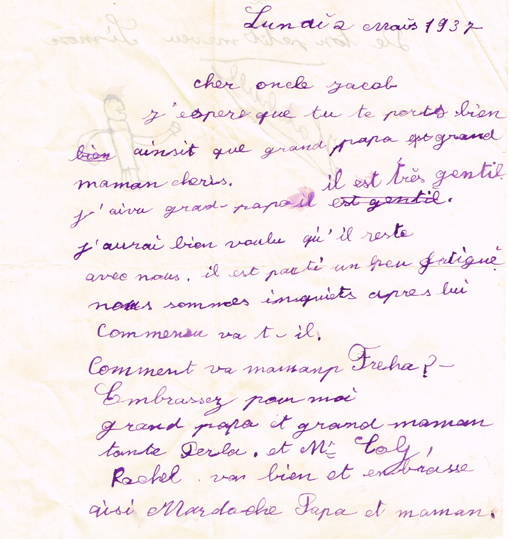 Lundi 2 Mais 1937
cher oncle Jacob
j'espere que tu te ports bien
bien ainsit que grand papa et grand
maman cheris. il est très gentil
j'aivu grad-papa il est gentil.
j'aurai bien voulu qu'il reste
avec nous. il est parti un peu fatigué
nous sommes inquiets apres lui
Commen va t-il.
Comment va mamanp Freha?-
Embrassez pour moi
grand papa et grand maman
tante Perla. et Mr
Rachel. va bien et embrasse
aisi Mardoche Papa et maman.